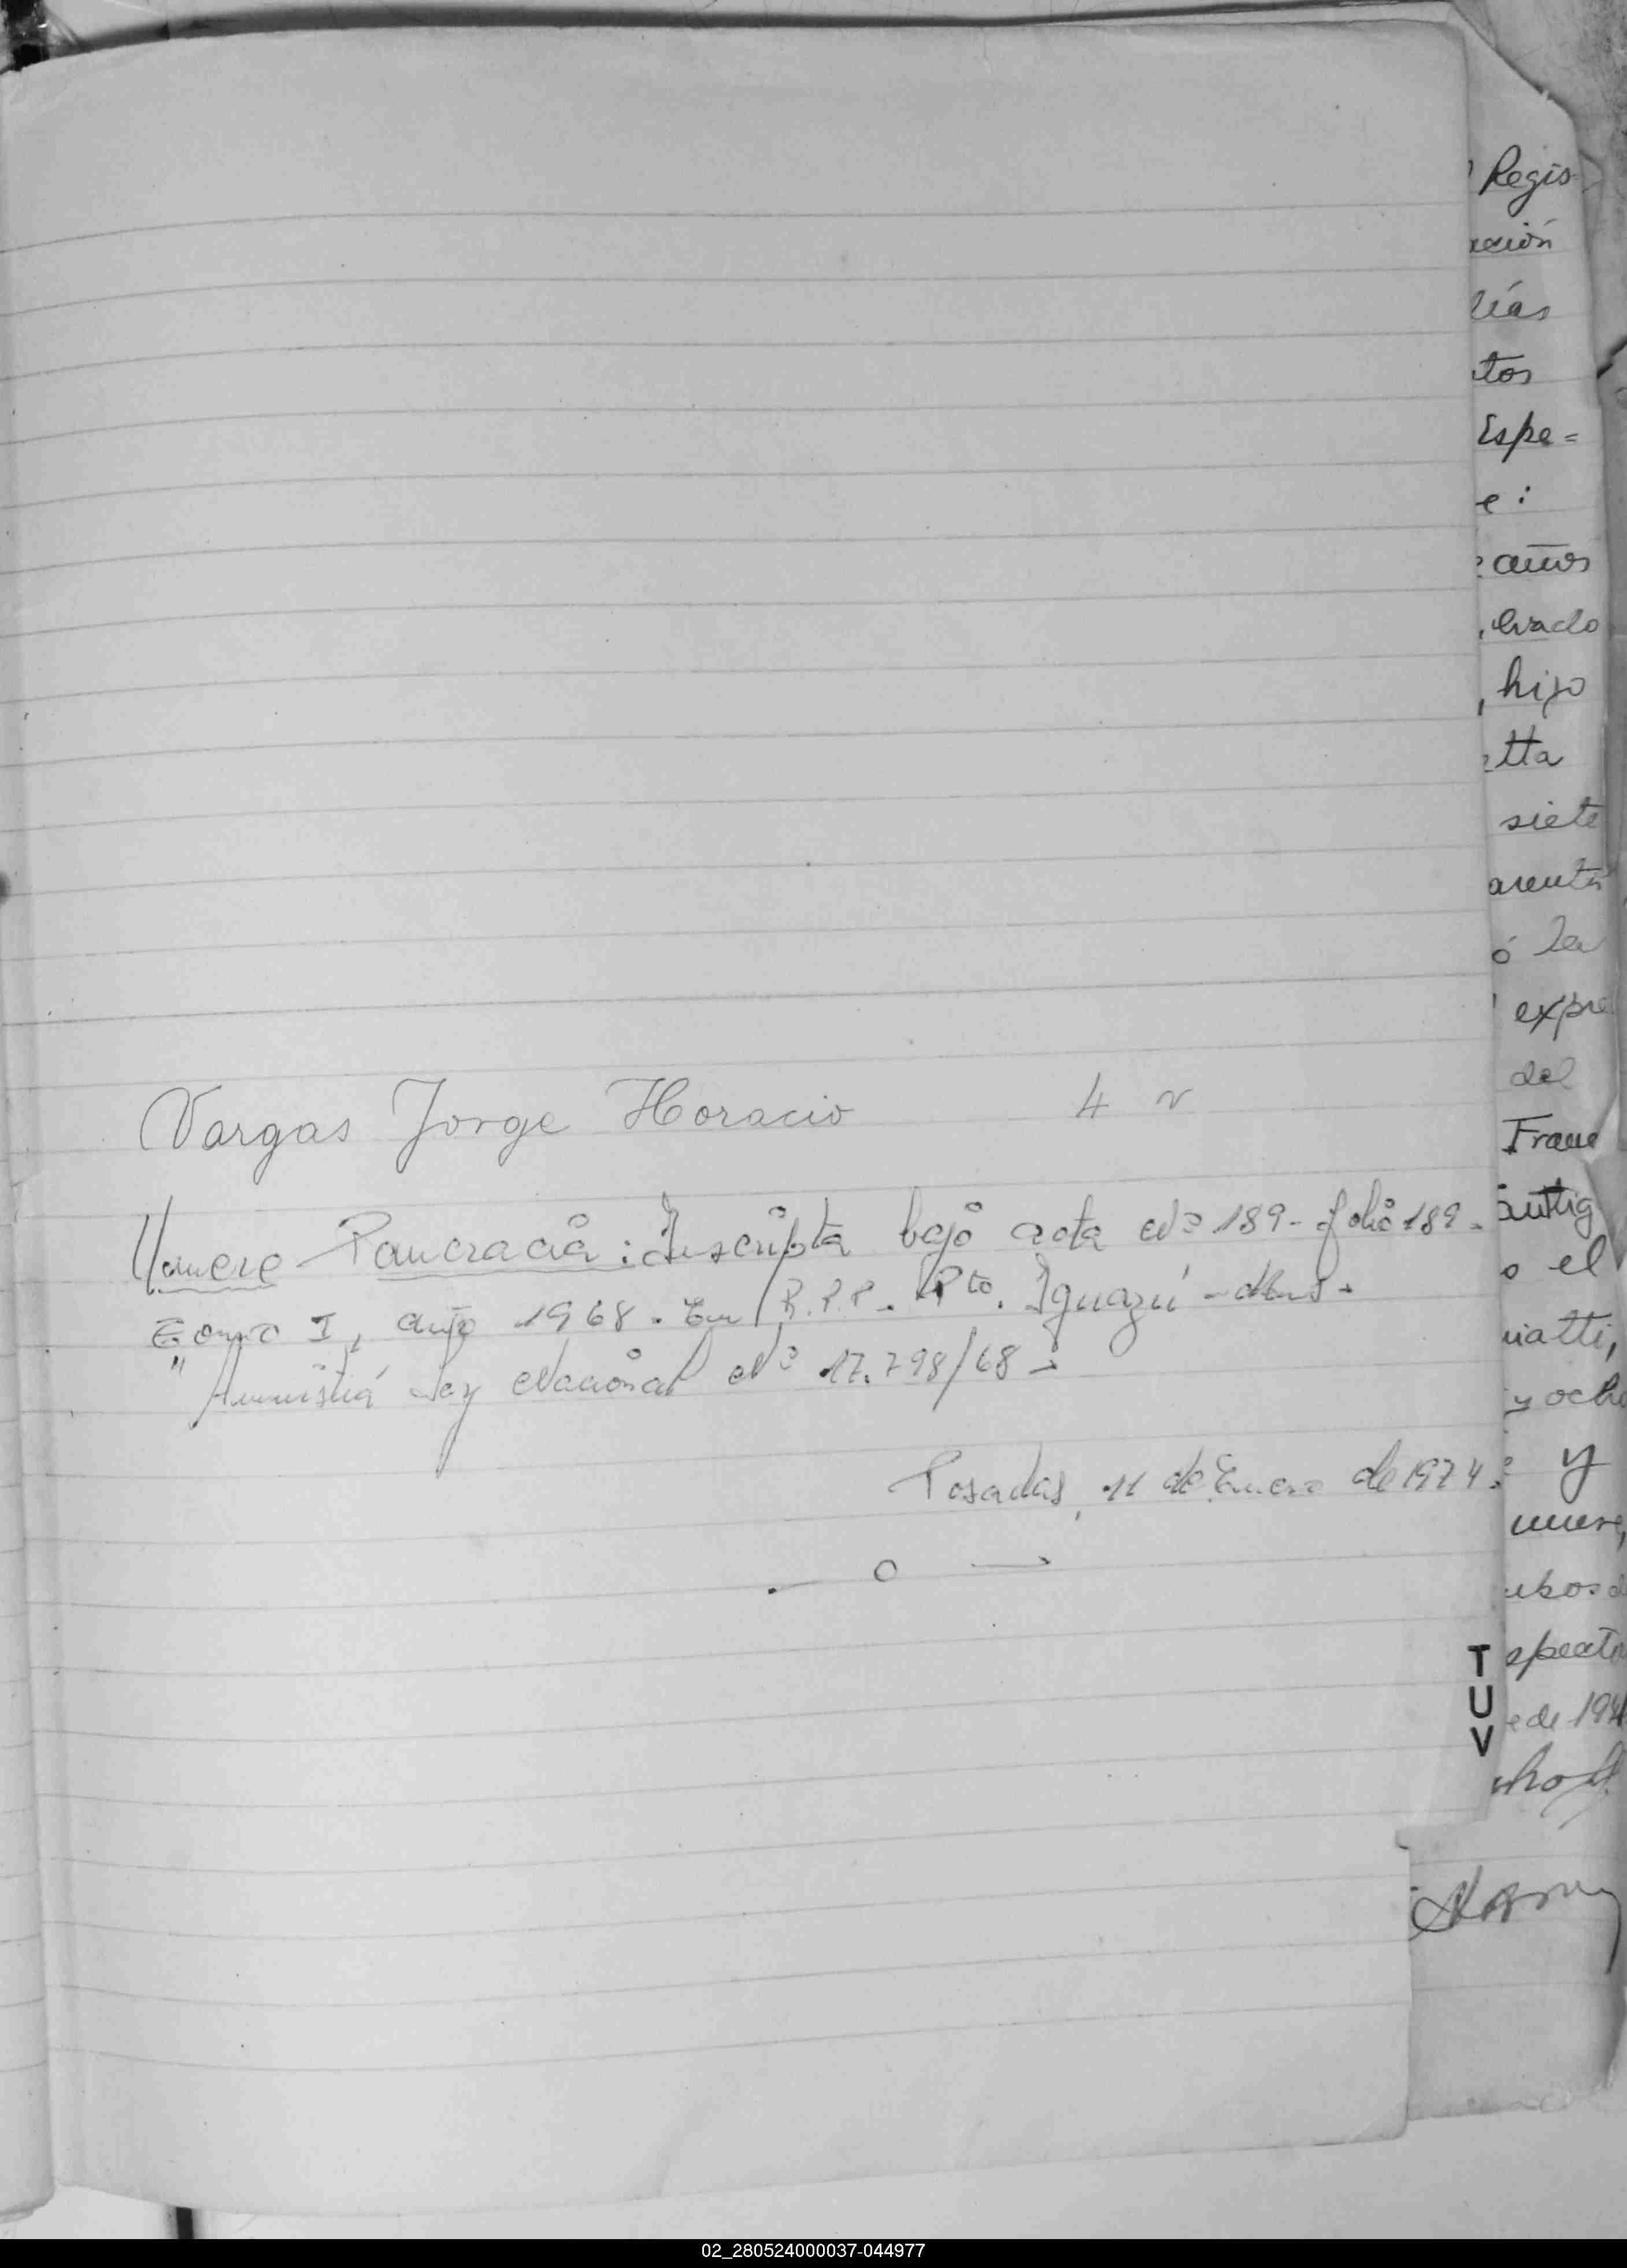 Vargas Jorge Horacio 4 v
Pancracia: Inscripta bajo acta Nº 189 - folio 189 -
Tomo I, año 1968. En R.P.P. Pto. Iguazú - Mnes -
"Amnistía Ley Nacional Nº 17.798/68 -
Posadas, 11 de Enero de 1974.
o
T
U
V
Regis
ación
días
tos
Espe=
e:
años
hijo
etta
siete
arenta
ó la
expre
del
Franc
Antig
o el
iatti,
y ocho
y
e de 194
02_280524000037-044977